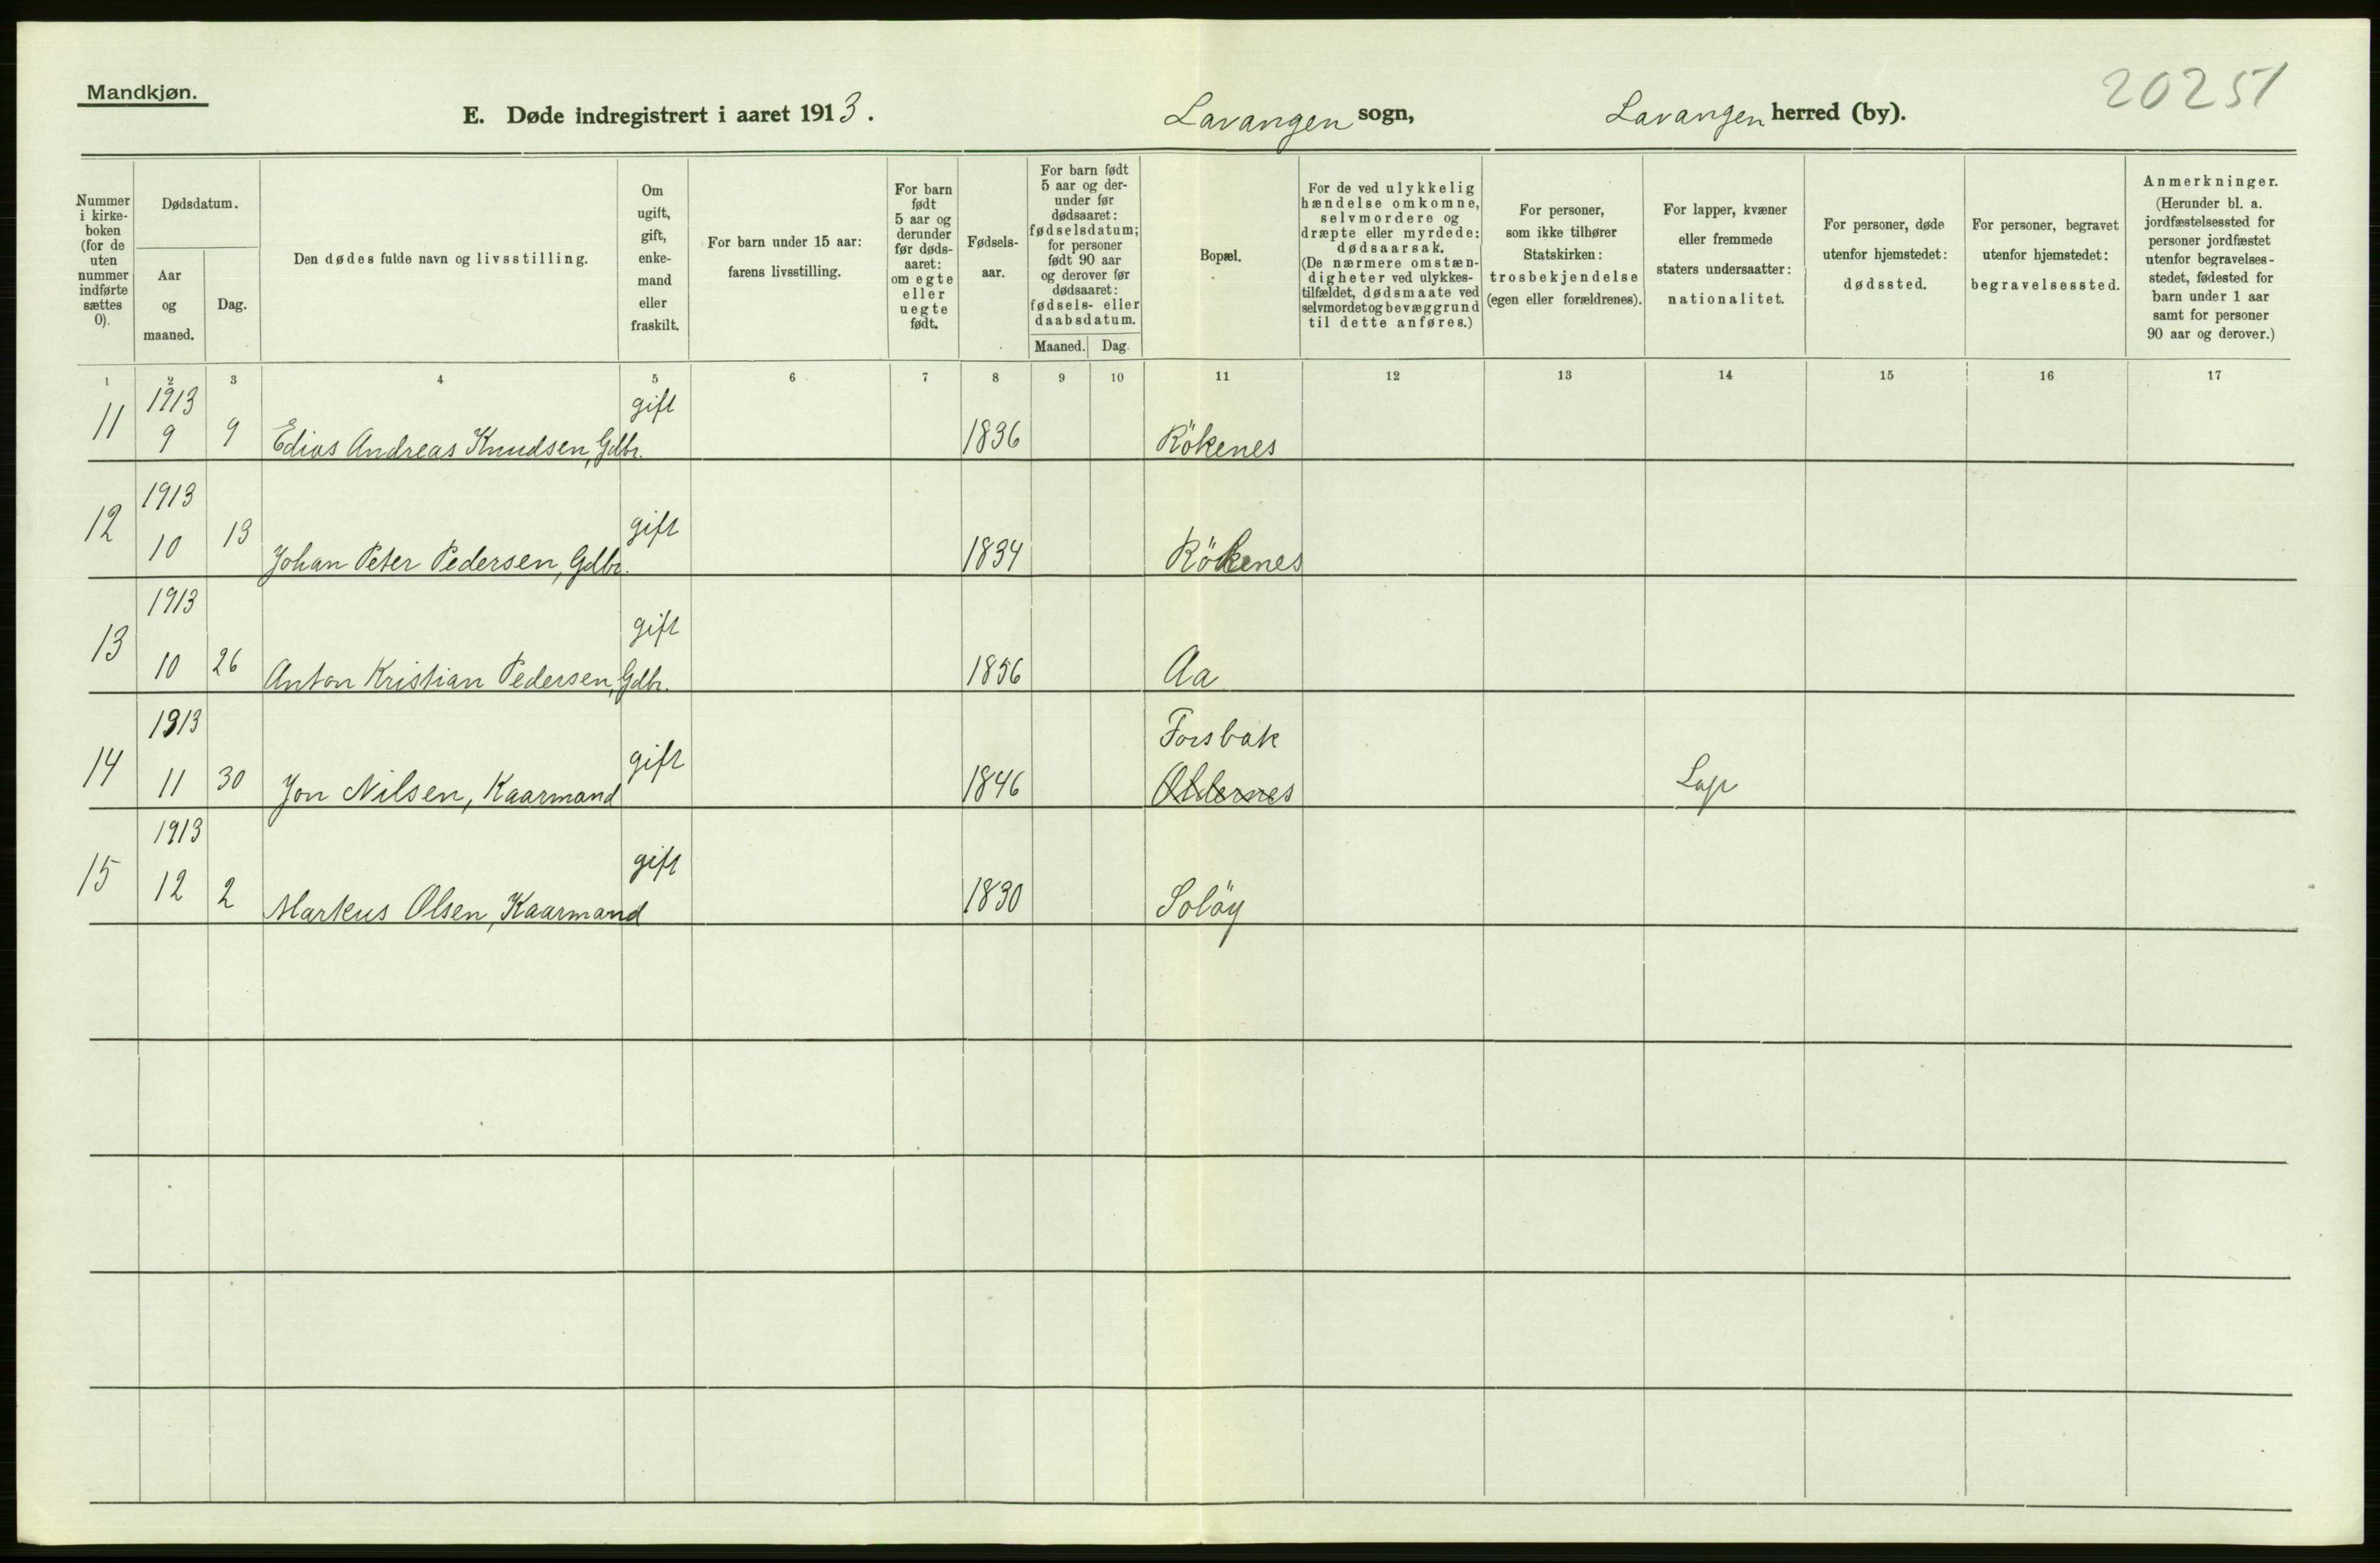 Mandkjøn.
20251
E. Døde indregistrert i aaret 1913. Lavangen sogn, Lavangen herred (by).
Nummer
i kirke-
boken
(for de
uten
nummer
indførte
sættes
0).
Dødsdatum.
Aar
og
maaned.
Dag.
Den dødes fulde navn og livsstilling.
Om
ugift,
gift,
enke-
mand
eller
fraskilt.
For barn under 15 aar:
farens livsstilling.
For barn
født
5 aar og
derunder
før døds-
aaret:
om egte
eller
uegte
født.
Fødsels-
aar.
For barn født
5 aar og der-
under før
dødsaaret:
fødselsdatum;
for personer
født 90 aar
og derover før
dødsaaret:
fødsels- eller
daabsdatum.
Maaned. Dag.
Bopæl.
For de ved ulykkelig
hændelse omkomne,
selvmordere og
dræpte eller myrdede:
dødsaarsak.
(De nærmere omstæn-
digheter ved ulykkes-
tilfældet, dødsmaate ved
selvmordet og bevæggrund
til dette anføres.)
For personer,
som ikke tilhører
Statskirken:
trosbekjendelse
(egen eller forældrenes).
For lapper, kvæner
eller fremmede
staters undersaatter:
nationalitet.
For personer, døde
utenfor hjemstedet:
dødssted.
For personer, begravet
utenfor hjemstedet:
begravelsessted.
Anmerkninger.
(Herunder bl. a.
jordfæstelsessted for
personer jordfæstet
utenfor begravelses-
stedet, fødested for
barn under 1 aar
samt for personer
90 aar og derover.)
1 2 3 4 5 6 7 8 9 10 11 12 13 14 15 16 17
1913 gift
11 9 9 Edias Andreas Knudsen, Gdbr. 1836 Rökenes
1913
12 10 13 Johan Peter Pedersen, Gdbr. gift 1834 Rökenes
1913
13 10 26 Anton Kristian Pedersen, Gdbr. gift 1856 Aa
1913 Forsbak
14 11 30 Jon Nilsen, Kaarmand gift 1846 Oldernes Lap
1913
15 12 2 Markus Olsen, Kaarmand gift 1830 Solöy